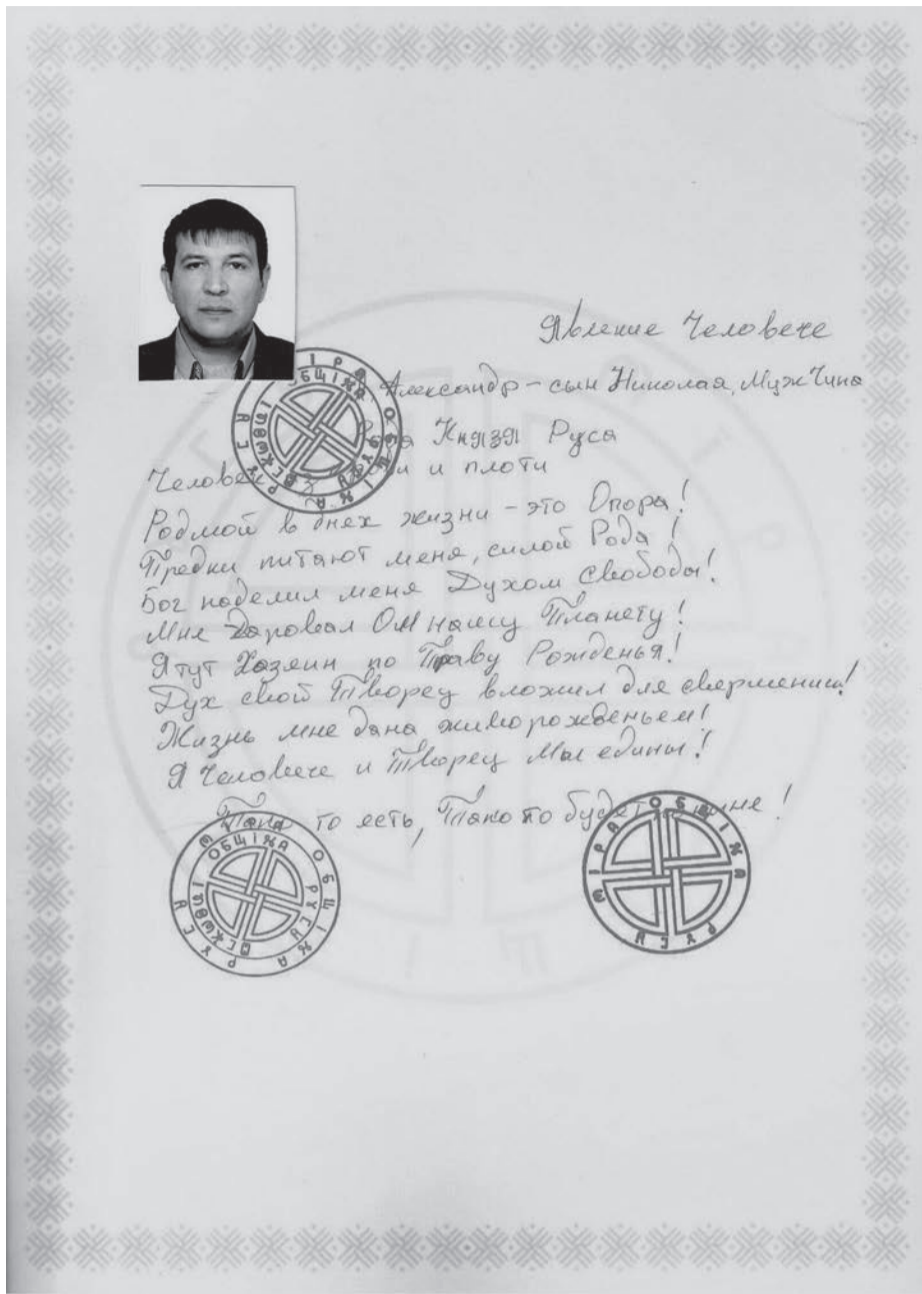 Явление Человече
Александр - сын Николая, МужЧина
Князя Руса
Человек и плоти
Родмой в днех жизни - это Опора!
Предки питают меня, силой Рода!
Бог наделил меня Духом Свободы!
Мне Даровал Он нашу Планету!
Я тут Хозяин по Праву Рожденья!
Дух свой Творец вложил для свершения!
Жизнь мне дана живорожденьем!
Я Человече и Творец Мы едины!
то есть, Тако то будет !